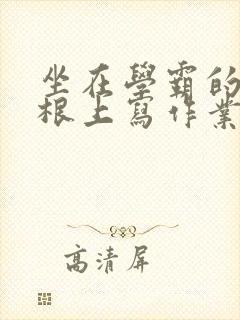 坐在學霸的
根上寫作業
高清屏